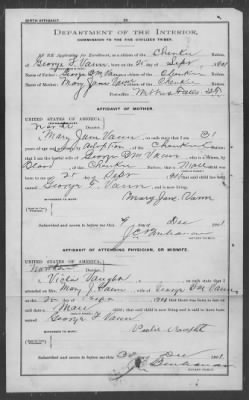 BIRTH AFFIDAVIT.
DEPARTMENT OF THE INTERIOR,
COMMISSION TO THE FIVE CIVILIZED TRIBES.
IN RE Application for Enrollment, as a citizen of the Cherokee Nation,
of George F. Vann, born on the 25 day of Sept, 1901
Name of Father: George W Vann a citizen of the Cherokee Nation.
Name of Mother: Mary Jane Vann a citizen of the Cherokee Nation.
AFFIDAVIT OF MOTHER.
UNITED STATES OF AMERICA,
District.
I, Mary Jane Vann, on oath state that I am 31
years of age and a citizen by adoption, of the Cherokee Nation;
that I am the lawful wife of George W Vann, who is a citizen, by
Blood of the Cherokee Nation; that a Male child was
born to me on 25 day of Sept, 1901, that said child has been
named George F. Vann, and is now living.
Mary Jane Vann
Subscribed and sworn to before me this 9 day of Dec 1901.
AFFIDAVIT OF ATTENDING PHYSICIAN, OR MIDWIFE.
UNITED STATES OF AMERICA,
District.
I, Vicie Vaught, a, on oath state that I
attended on Mrs. Mary J. Vann, wife of George W Vann
on the 25 day of Sept, 1901, that there was born to her on
said date a Male child; that said child is now living and is said to have been
named George F Vann
Subscribed and sworn to before me this day of Dec 1901.